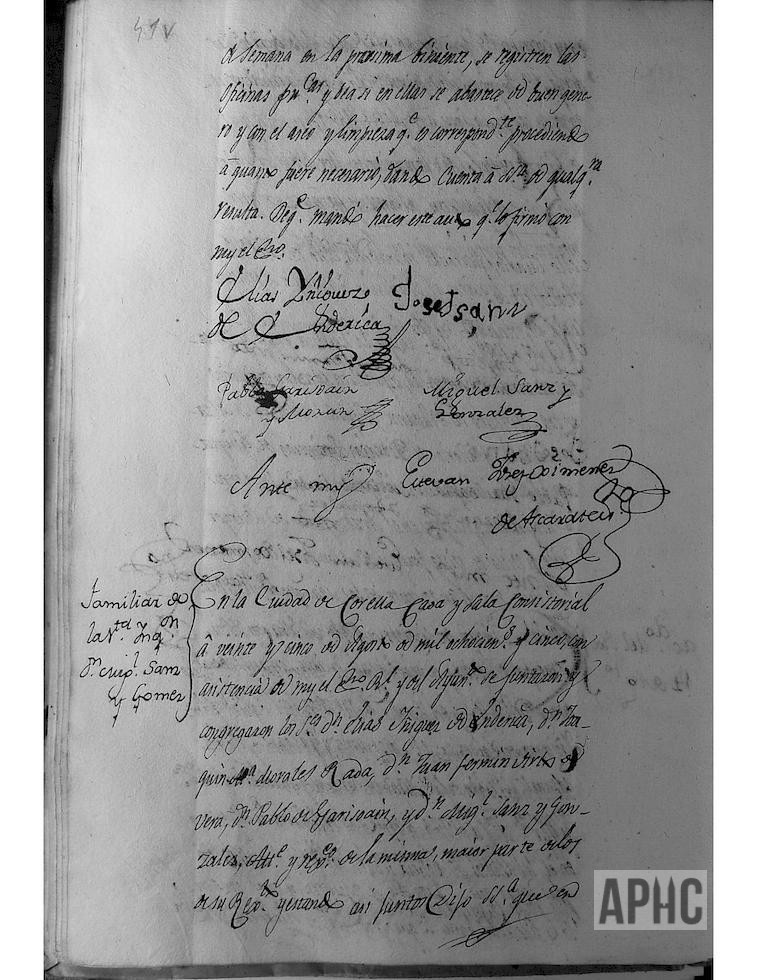 41v
de Semana en la proxima biniente, se registren las
oficinas pu.cas y vea si en ellas se abastece de buen gene-
ro y con el aseo y limpieza q.e es correspond.te procediend.
á quanto fuere necesario, dando Cuenta á S.S.a de qualq.ra
resulta. De q.e mandó hacer este auto q.e lo firmó con
my el Es.no
Elias Yñiguez
de Enderica
Josef sanz
Pablo Garisoain
y Moxun
Miguel Sanz y
Gonzalez
Ante my
Estevan Josef Ximenez
de Ascarate, es.no
Familiar de
la S.ta Ynq.on
D.n Mig.l Sanz
y Gomez
En la Ciudad de Corella Casa y Sala Consistorial
á veinte y cinco de Agosto de mil ochocien.s y cinco, con
asistencia de my el Es.no R.l y del Ayun.to se juntaron y
congregaron los S.res D.n Elias Yñiguez de Enderica, D.n Joa-
quin M.a Morales Rada, D.n Juan fermin Virto de
Vera, D.n Pablo de Garisoain, y D.n Mig.l Sanz y Gon-
zalez, Alc.e y rex.es de la misma, maior parte de los
de su Rex.to y estando asi juntos Dijo S.S.a que en
APHC